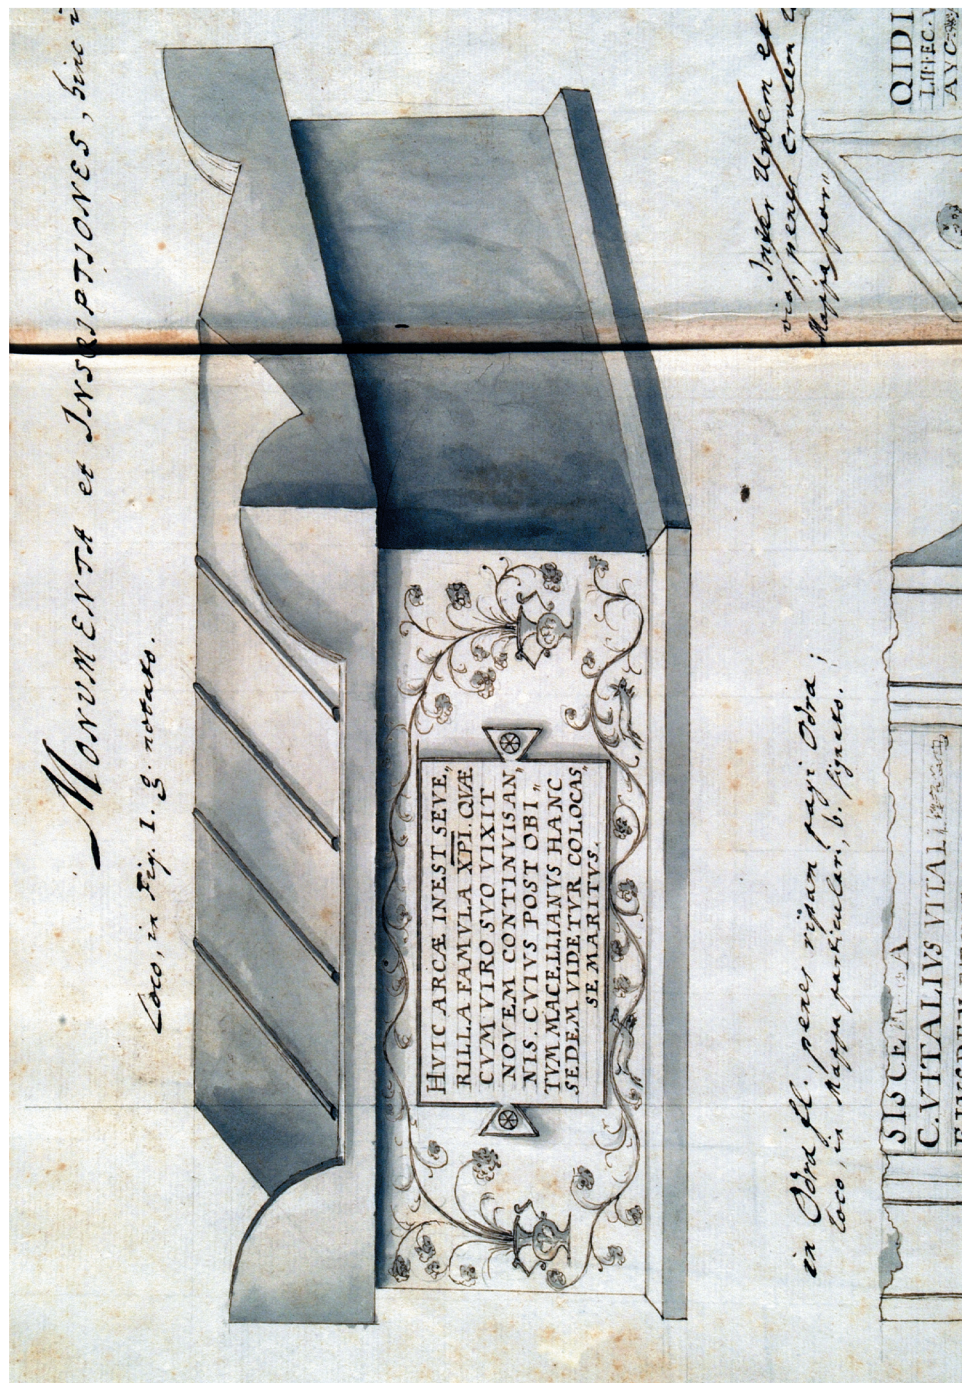 MONVMENTA et INSCRIPTIONES, hinc
Loco, in Fig. I. g. notato.
HVIC ARCÆ INEST SEVE„
RILLA FAMVLA XPI. QVÆ
CVM VIRO SVO VIXIT
NOVEM CONTINVIS AN„
NIS. CVIVS POST OBI„
TVM MACELLIANVS HANC
SEDEM VIDETVR COLOCAS„
SE MARITVS.
in Odra fl., penes ripam pagi Odra;
loco, in Mappa particulari, b. signato.
SISCE
C. VITALIVS VITALI
Inter Urbem et
vias penes crucem
Mappa par„
QIDI
AVC